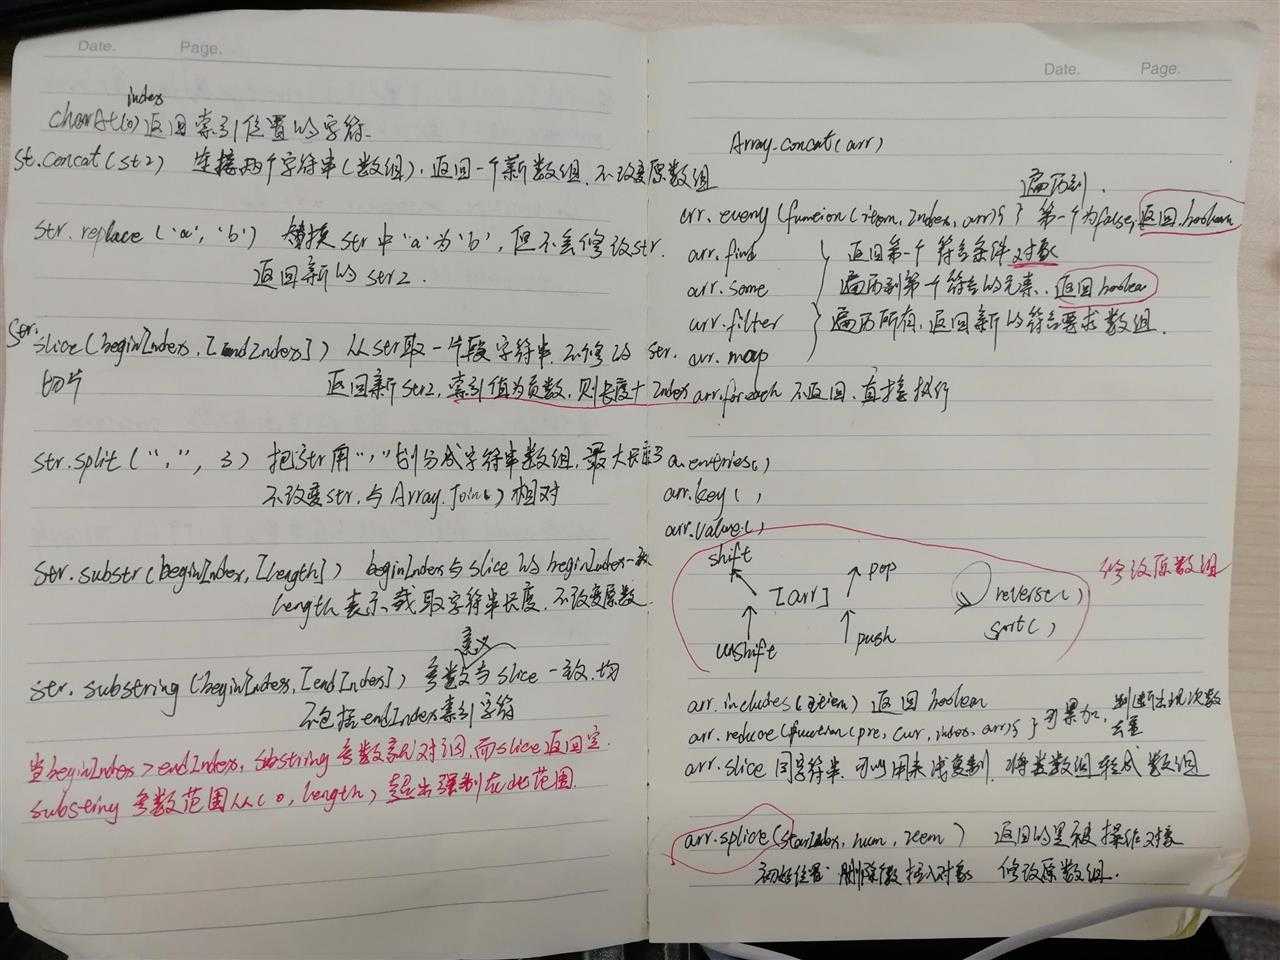 Date. Page.
index
charAt(0) 返回索引位置的字符.
st.concat(st2) 连接两个字符串(数组), 返回一个新数组, 不改变原数组
str.replace('a', 'b') 替换str中'a'为'b', 但不会修改str.
返回新的str2.
str.slice(beginIndex, [endIndex]) 从str取一片段字符串, 不修改str.
切片 返回新str2, 索引值为负数, 则长度+Index
str.split(",", 3) 把str用","划分成字符串数组, 最大长度3
不改变str, 与Array.Join()相对
str.substr(beginIndex, [length]) beginIndex与slice的beginIndex一致
length表示截取字符串长度, 不改变原数
意义
str.substring(beginIndex, [endIndex]) 参数与slice一致, 均
不包括endIndex索引字符
当beginIndex>endIndex, substring参数会对调, 而slice返回空.
substring参数范围从(0, length), 超出强制在此范围.
Date. Page.
Array.concat(arr)
遍历到.
arr.every(function(item, Index, arr){} 第一个为false, 返回boolean
arr.find 返回第一个符合条件对象
arr.some 遍历到第一个符合的元素, 返回boolean
arr.filter 遍历所有, 返回新的符合要求数组.
arr.map
arr.foreach 不返回, 直接执行
a.entries()
arr.key()
arr.value()
修改原数组
shift pop
[arr] reverse()
unshift push sort()
arr.includes(item) 返回boolean
arr.reduce(function(pre, cur, index, arr){} 可累加, 判断出现次数
去重
arr.slice 同字符串, 可以用来浅复制, 将类数组转成数组
arr.splice(starIndex, num, item) 返回的是被操作对象
初始位置 删除数 插入对象 修改原数组.